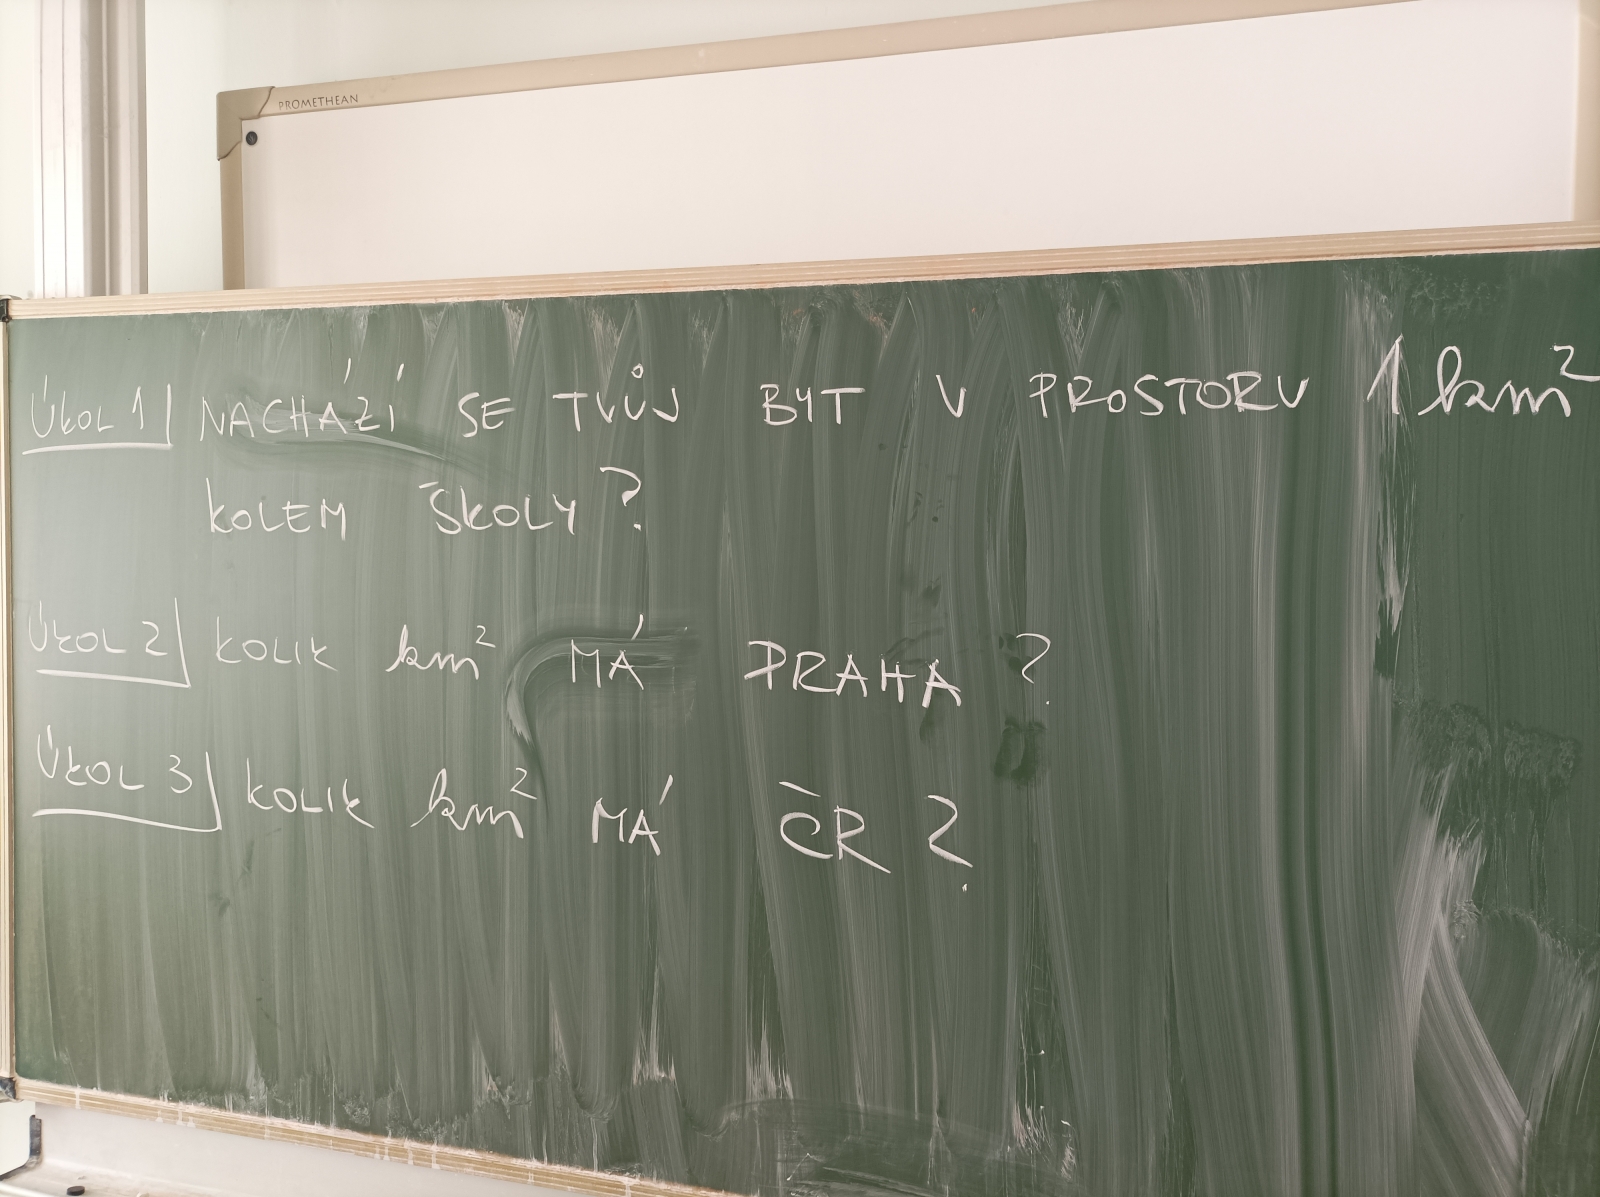 PROMETHEAN
ÚKOL 1 NACHÁZÍ SE TVŮJ BYT V PROSTORU 1 km²
KOLEM ŠKOLY?
ÚKOL 2 KOLIK km² MÁ PRAHA?
ÚKOL 3 KOLIK km² MÁ ČR?